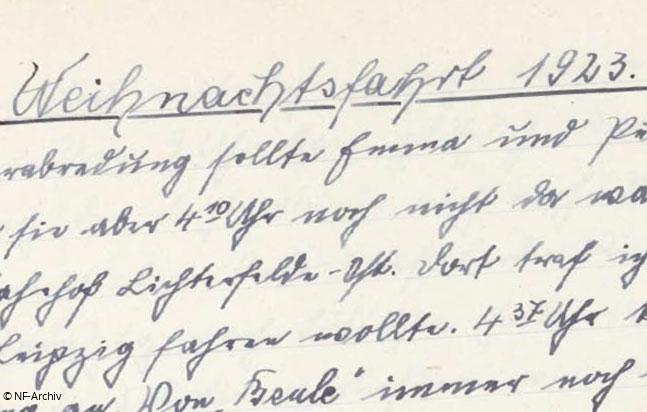 Weihnachtsfahrt 1923.
rabredung sollte Emma und Pü
sie aber 4¹⁰ Uhr noch nicht da wa
ahnhof Lichterfelde-Ost. Dort traf ich
Leipzig fahren wollte. 4³⁷ Uhr
an. Von „Keule“ immer noch
© NF-Archiv